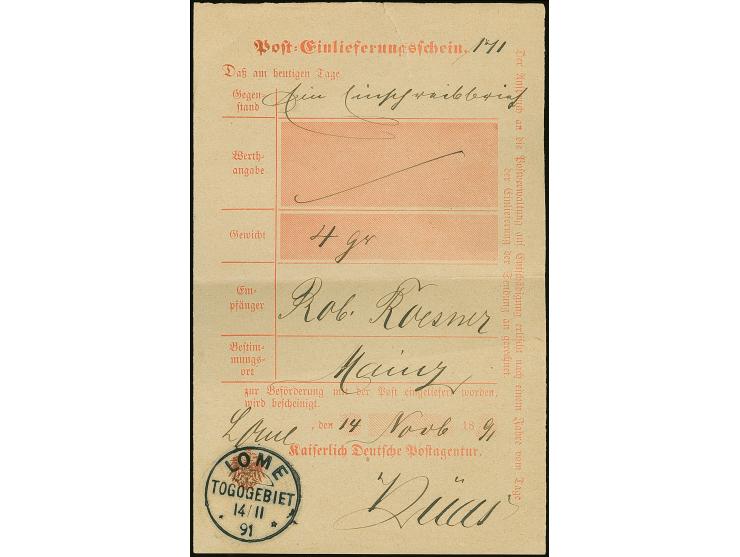 Post-Einlieferungsschein. 171
Daß am heutigen Tage
Gegen-
stand
Ein Einschreibbrief
Werth-
angabe
Gewicht
4 gr
Em-
pfänger
Rob. Roesner
Bestim-
mungs-
ort
Mainz
zur Beförderung mit der Post eingeliefert worden,
wird bescheinigt.
Lome, den 14 Novb 1891
Kaiserlich Deutsche Postagentur.
LOME
TOGOGEBIET
14/11
91
Der Anspruch an die Postverwaltung auf Entschädigung erlischt nach einem Jahre vom Tage
der Einlieferung der Sendung an gerechnet.